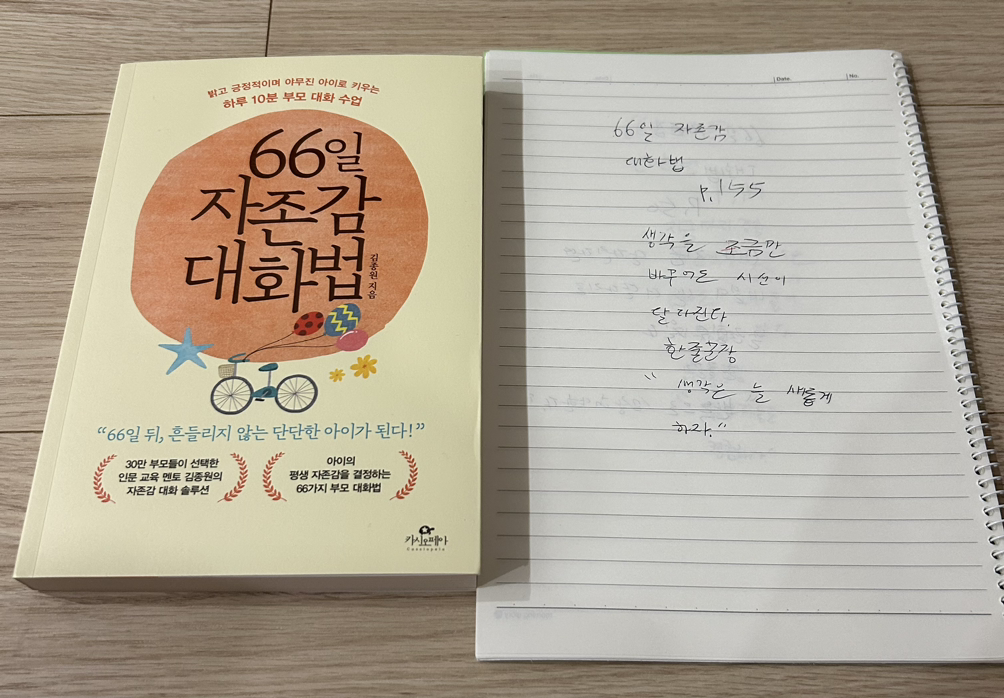 밝고 긍정적이며 야무진 아이로 키우는
하루 10분 부모 대화 수업
66일
자존감
대화법
김종원 지음
“66일 뒤, 흔들리지 않는 단단한 아이가 된다!”
30만 부모들이 선택한
인문 교육 멘토 김종원의
자존감 대화 솔루션
아이의
평생 자존감을 결정하는
66가지 부모 대화법
카시오페아
Cassiopeia
Date.
No.
66일 자존감
대화법
p.155
생각을 조금만
바꾸어도 시선이
달라진다.
한줄문장
"생각은 늘 새롭게
하자."